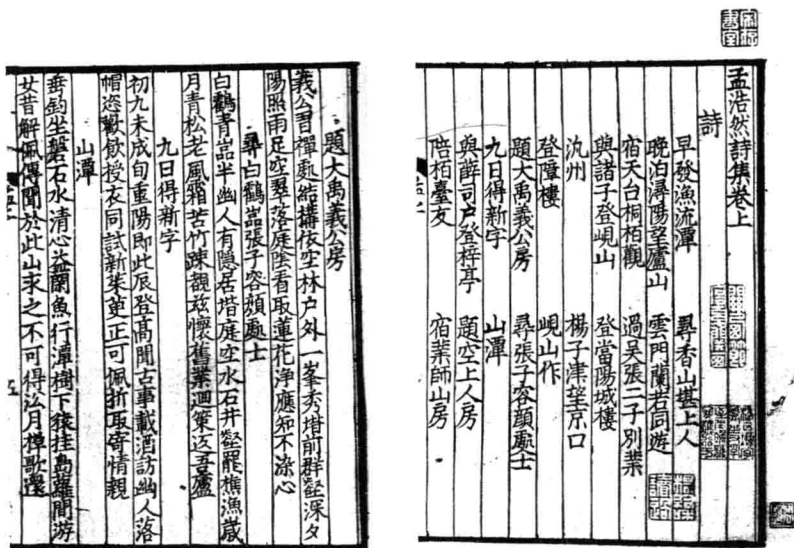 孟浩然詩集卷上
詩
早發漁流潭 尋香山堪上人
晚泊潯陽望廬山 雲門蘭若同遊
宿天台桐栢觀 過吳張二子別業
與諸子登峴山 登當陽城樓
州 楊子津望京口
登障樓 峴山作
題大禹義公房 尋張子容顏處士
九日得新字 山潭
與薛司户登梓亭 題空上人房
陪栢臺友 宿業師山房
題大禹義公房
義公習禪處結搆依空林户外一峯秀堦前群壑深夕
陽照雨足空翠落庭陰看取蓮花淨應知不染心
尋白鶴嵓張子容顏處士
白鶴青嵓半幽人有隱居堦庭空水石井壑罷樵漁歲
月青松老風霜苦竹踈覩兹懷舊業迴策返吾廬
九日得新字
初九未成旬重陽即此辰登髙聞古事載酒訪幽人落
帽恣歡飲授衣同試新茱萸正可佩折取寄情親
山潭
垂釣坐磐石水清心益閑魚行潭樹下猿挂島蘿間游
女昔解佩傳聞於此山求之不可得沿月棹歌還